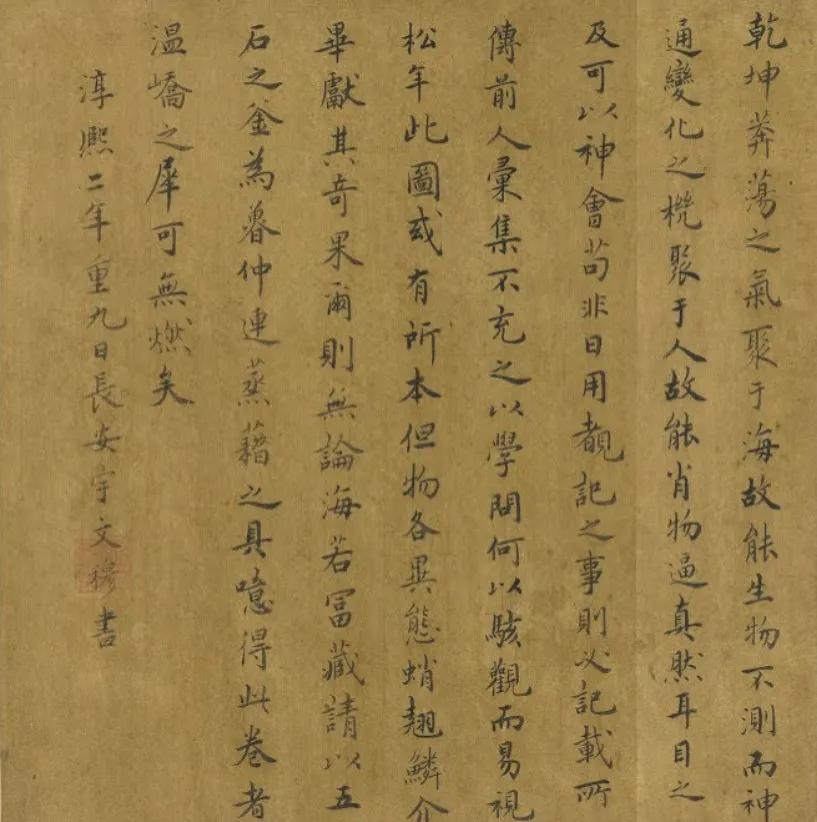 乾坤莽蕩之氣聚于海故能生物不測而神
通變化之機聚于人故能肖物逼真然耳目之
及可以神會苟非日用覩記之事則必記載所
傳前人彙集不充之以學問何以駭觀而易視
松年此圖或有所本但物各異態蛸翹鱗介
畢獻其奇果爾則無論海若冨藏請以五
石之釜為魯仲連蒸藉之具噫得此卷者
温嶠之犀可無燃矣
淳熙二年重九日長安宇文穆書